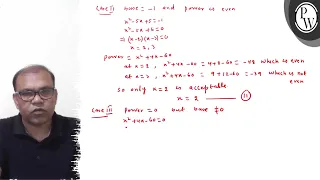 Case II base = -1 and power is even
x²-5x+5=-1
x²-5x+6=0
⇒(x-2)(x-3)=0
x=2,3
Power = x²+4x-60
at x=2, x²+4x-60 = 4+8-60 = -48 which is even
at x=3, x²+4x-60 = 9+12-60 = -39 which is not
even
so only x=2 is acceptable
x=2 ——— II
Case III Power=0 but base ≠0
x²+4x-60=0
PW